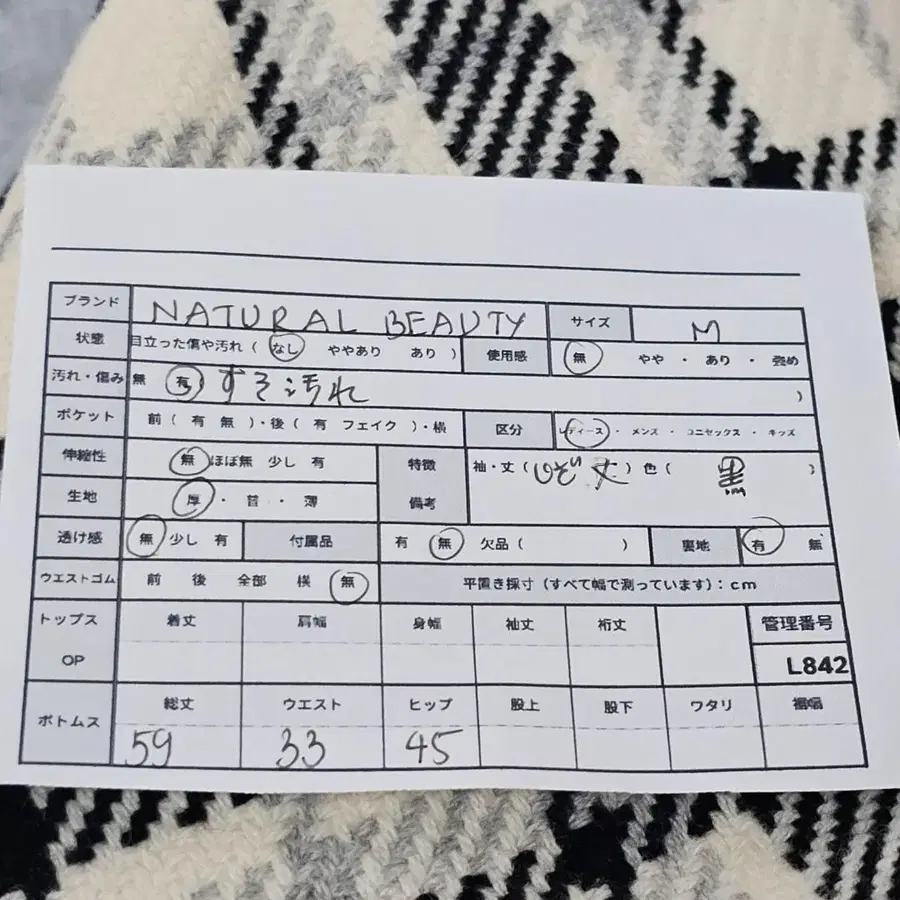 ブランド NATURAL BEAUTY サイズ M
状態 目立った傷や汚れ ( なし ややあり あり ) 使用感 無 やや ・ あり ・ 強め
汚れ・傷み 無 有 ( すそ汚れ )
ポケット 前 ( 有 無 )・後 ( 有 フェイク )・横 区分 レディース ・ メンズ ・ ユニセックス ・ キッズ
伸縮性 無 ほぼ無 少し 有 特徴 袖・丈 ( ひざ丈 ) 色 ( 黒 )
生地 厚 ・ 普 ・ 薄 備考
透け感 無 少し 有 付属品 有 無 欠品 ( ) 裏地 有 無
ウエストゴム 前 後 全部 横 無 平置き採寸 (すべて幅で測っています) : cm
トップス 着丈 肩幅 身幅 袖丈 裄丈 管理番号
OP L842
ボトムス 総丈 ウエスト ヒップ 股上 股下 ワタリ 裾幅
59 33 45